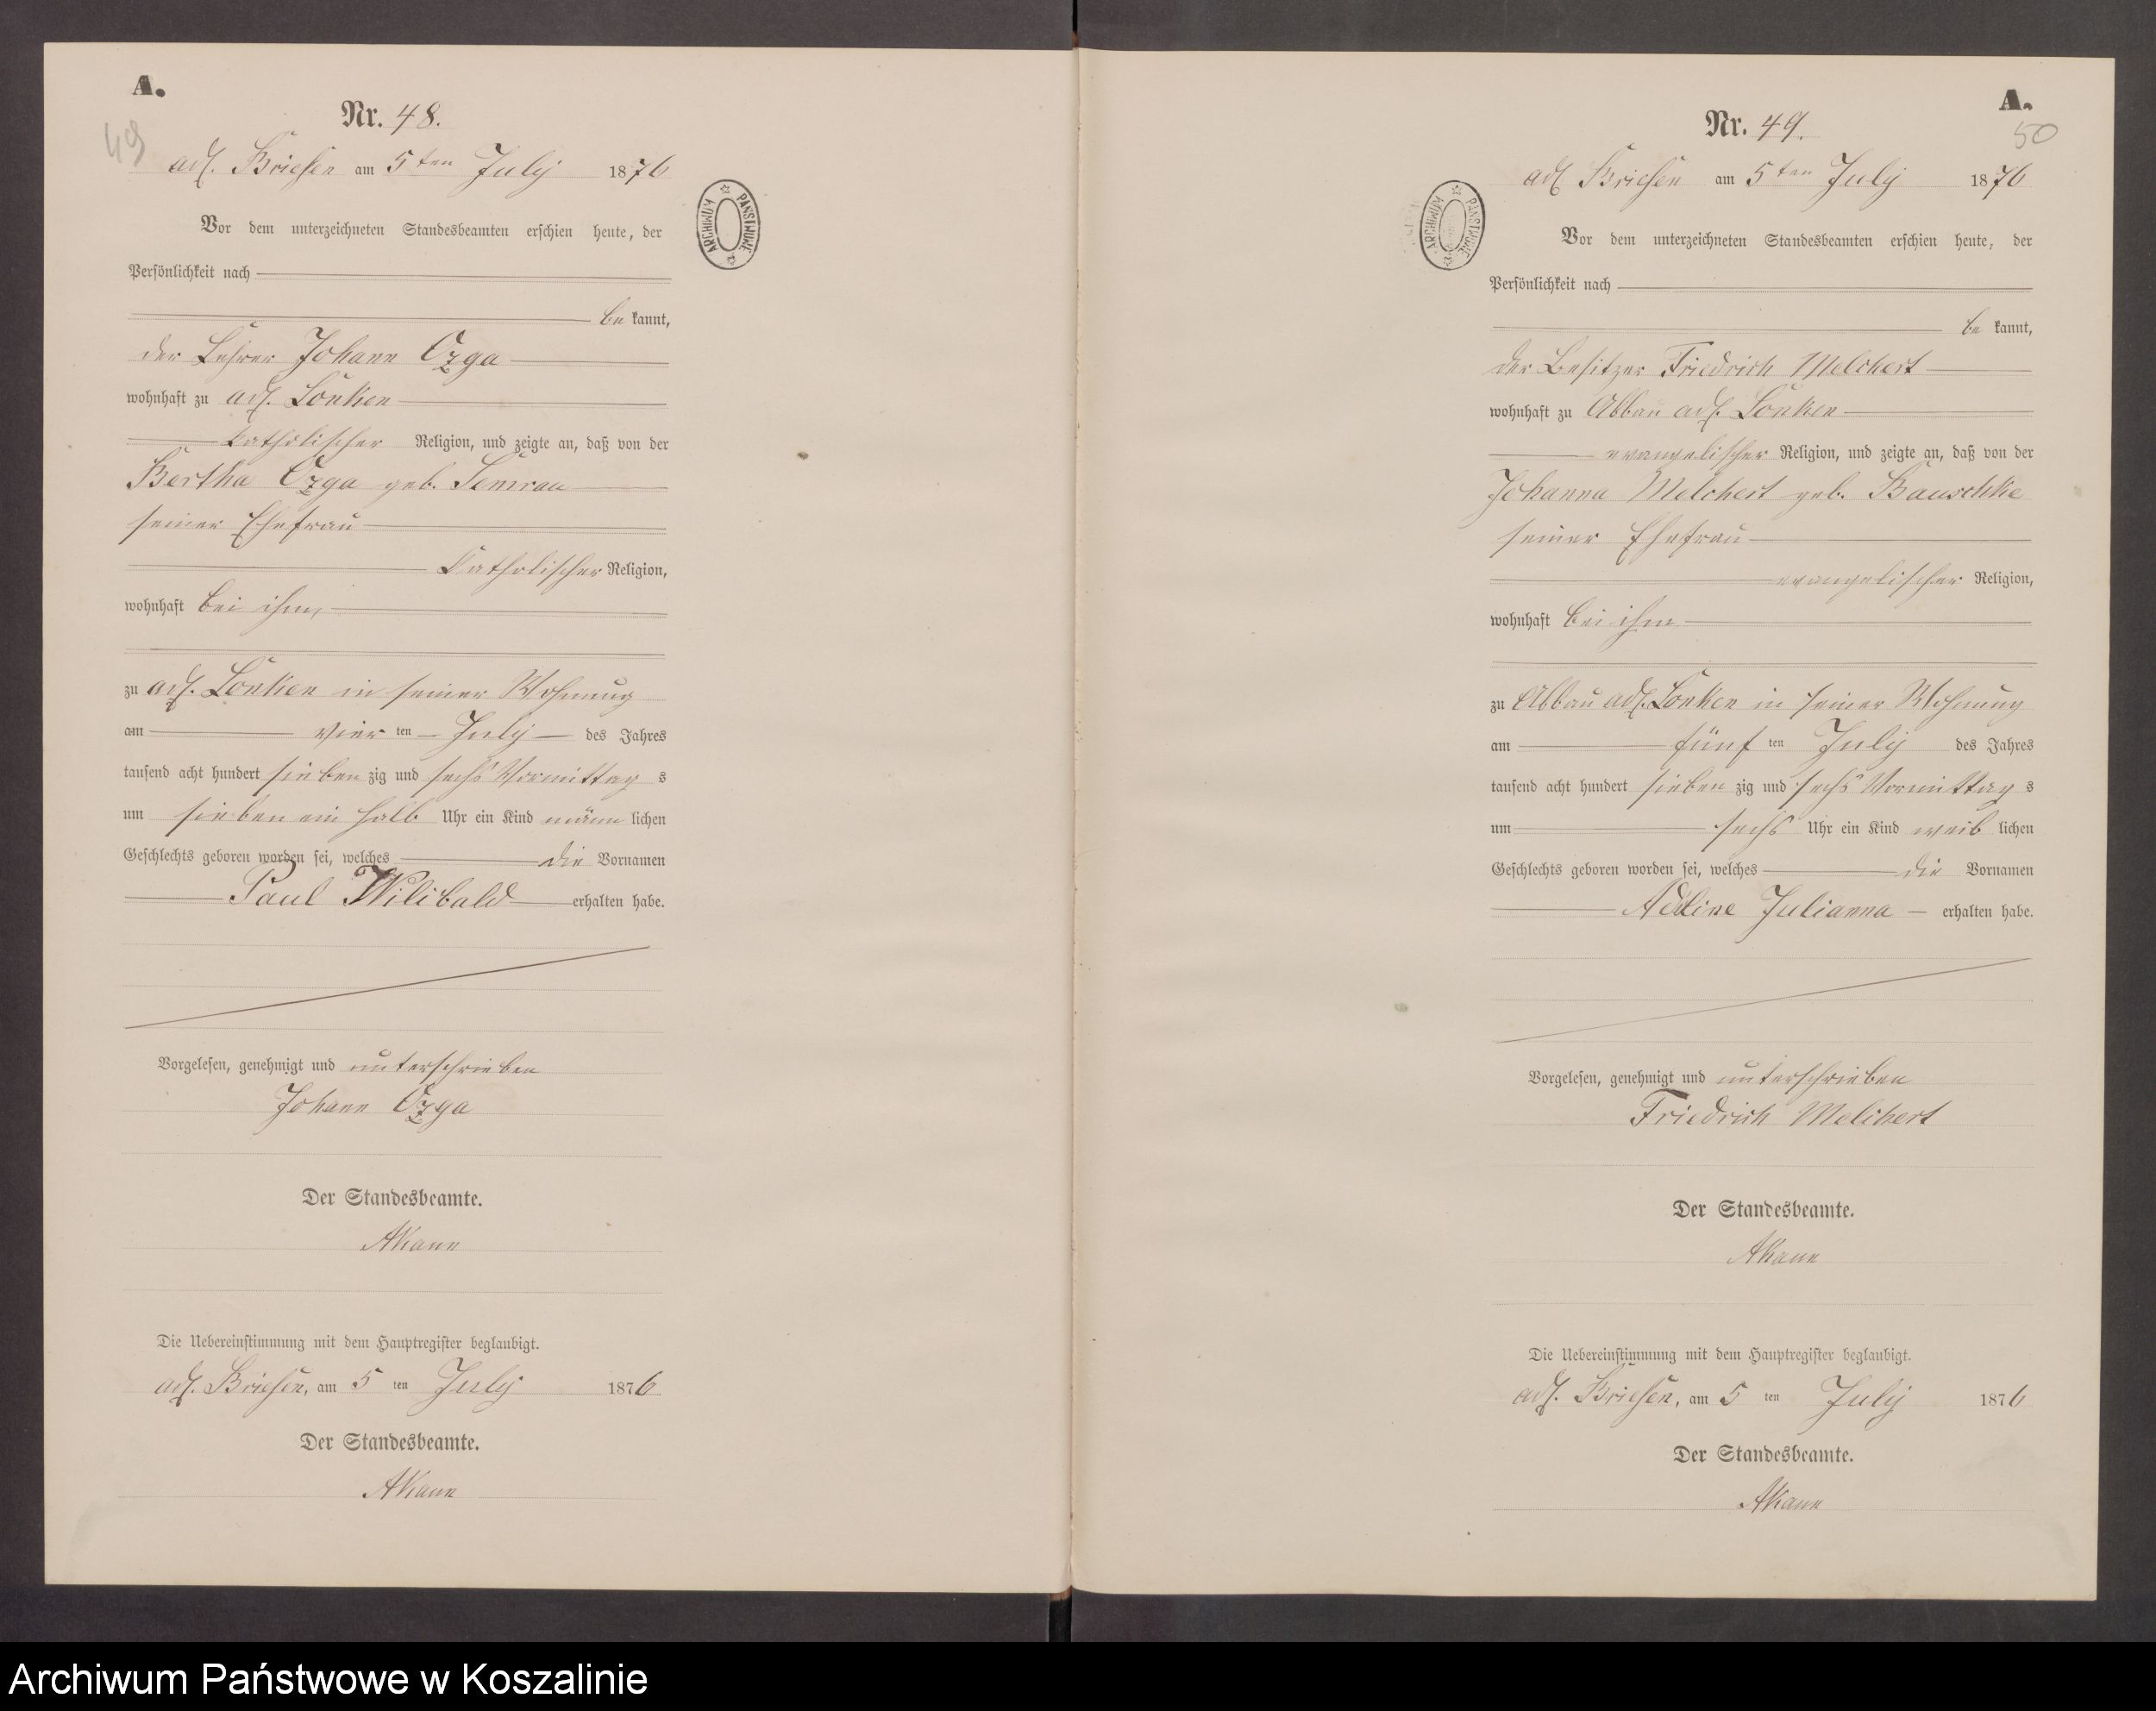 A.
Nr. 48.
49
adl. Briesen am 5ten July 1876
Vor dem unterzeichneten Standesbeamten erschien heute, der
Persönlichkeit nach
be kannt,
der Lehrer Johann Ozga
wohnhaft zu adl. Lonken
katholischer Religion, und zeigte an, daß von der
Bertha Ozga geb. Semrau
seiner Ehefrau
katholischer Religion,
wohnhaft bei ihm,
zu adl. Lonken in seiner Wohnung
am vier ten July des Jahres
tausend acht hundert sieben zig und sechs Vormittag s
um sieben ein halb Uhr ein Kind männ lichen
Geschlechts geboren worden sei, welches die Vornamen
Paul Wilibald erhalten habe.
Vorgelesen, genehmigt und unterschrieben
Johann Ozga
Der Standesbeamte.
AKann
Die Uebereinstimmung mit dem Hauptregister beglaubigt.
adl. Briesen, am 5 ten July 1876
Der Standesbeamte.
AKann
ARCHIWUM PAŃSTWOWE
A.
Nr. 49.
50
adl Briesen am 5ten July 1876
ARCHIWUM PAŃSTWOWE
Vor dem unterzeichneten Standesbeamten erschien heute, der
Persönlichkeit nach
be kannt,
der Besitzer Friedrich Melchert
wohnhaft zu Abbau adl. Lonken
evangelischer Religion, und zeigte an, daß von der
Johanna Melchert geb. Bauschke
seiner Ehefrau
evangelischer Religion,
wohnhaft bei ihm
zu Abbau adl. Lonken in seiner Wohnung
am fünf ten July des Jahres
tausend acht hundert sieben zig und sechs Vormittag s
um sechs Uhr ein Kind weib lichen
Geschlechts geboren worden sei, welches die Vornamen
Julianna erhalten habe.
Vorgelesen, genehmigt und unterschrieben
Friedrich Melchert
Der Standesbeamte.
AKann
Die Uebereinstimmung mit dem Hauptregister beglaubigt.
adl. Briesen, am 5 ten July 1876
Der Standesbeamte.
AKann
Archiwum Państwowe w Koszalinie